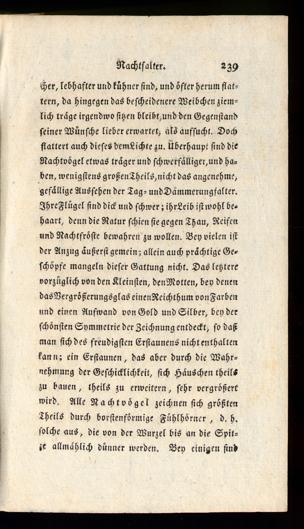 Nachtfalter. 239
cher, lebhafter und kühner sind, und öfter herum flat-
tern, da hingegen das bescheidenere Weibchen ziem-
lich träge irgendwo sitzen bleibt, und den Gegenstand
seiner Wünsche lieber erwartet, als aufsucht. Doch
flattert auch dieses dem Lichte zu. Überhaupt sind die
Nachtvögel etwas träger und schwerfälliger, und ha-
ben, wenigstens großen Theils, nicht das angenehme,
gefällige Aussehen der Tag- und Dämmerungsfalter.
Ihre Flügel sind dick und schwer; ihr Leib ist wohl be-
haart, denn die Natur schien sie gegen Thau, Reifen
und Nachtfröste bewahren zu wollen. Bey vielen ist
der Anzug äußerst gemein; allein auch prächtige Ge-
schöpfe mangeln dieser Gattung nicht. Das letztere
vorzüglich von den Kleinsten, den Motten, bey denen
das Vergrößerungsglas einen Reichthum von Farben
und einen Aufwand von Gold und Silber, bey der
schönsten Symmetrie der Zeichnung entdeckt, so daß
man sich des freudigsten Erstaunens nicht enthalten
kann; ein Erstaunen, das aber durch die Wahr-
nehmung der Geschicklichkeit, sich Häuschen theils
zu bauen, theils zu erweitern, sehr vergrößert
wird. Alle Nachtvögel zeichnen sich größten
Theils durch borstenförmige Fühlhörner, d. h.
solche aus, die von der Wurzel bis an die Spit-
ze allmählich dünner werden. Bey einigen sind